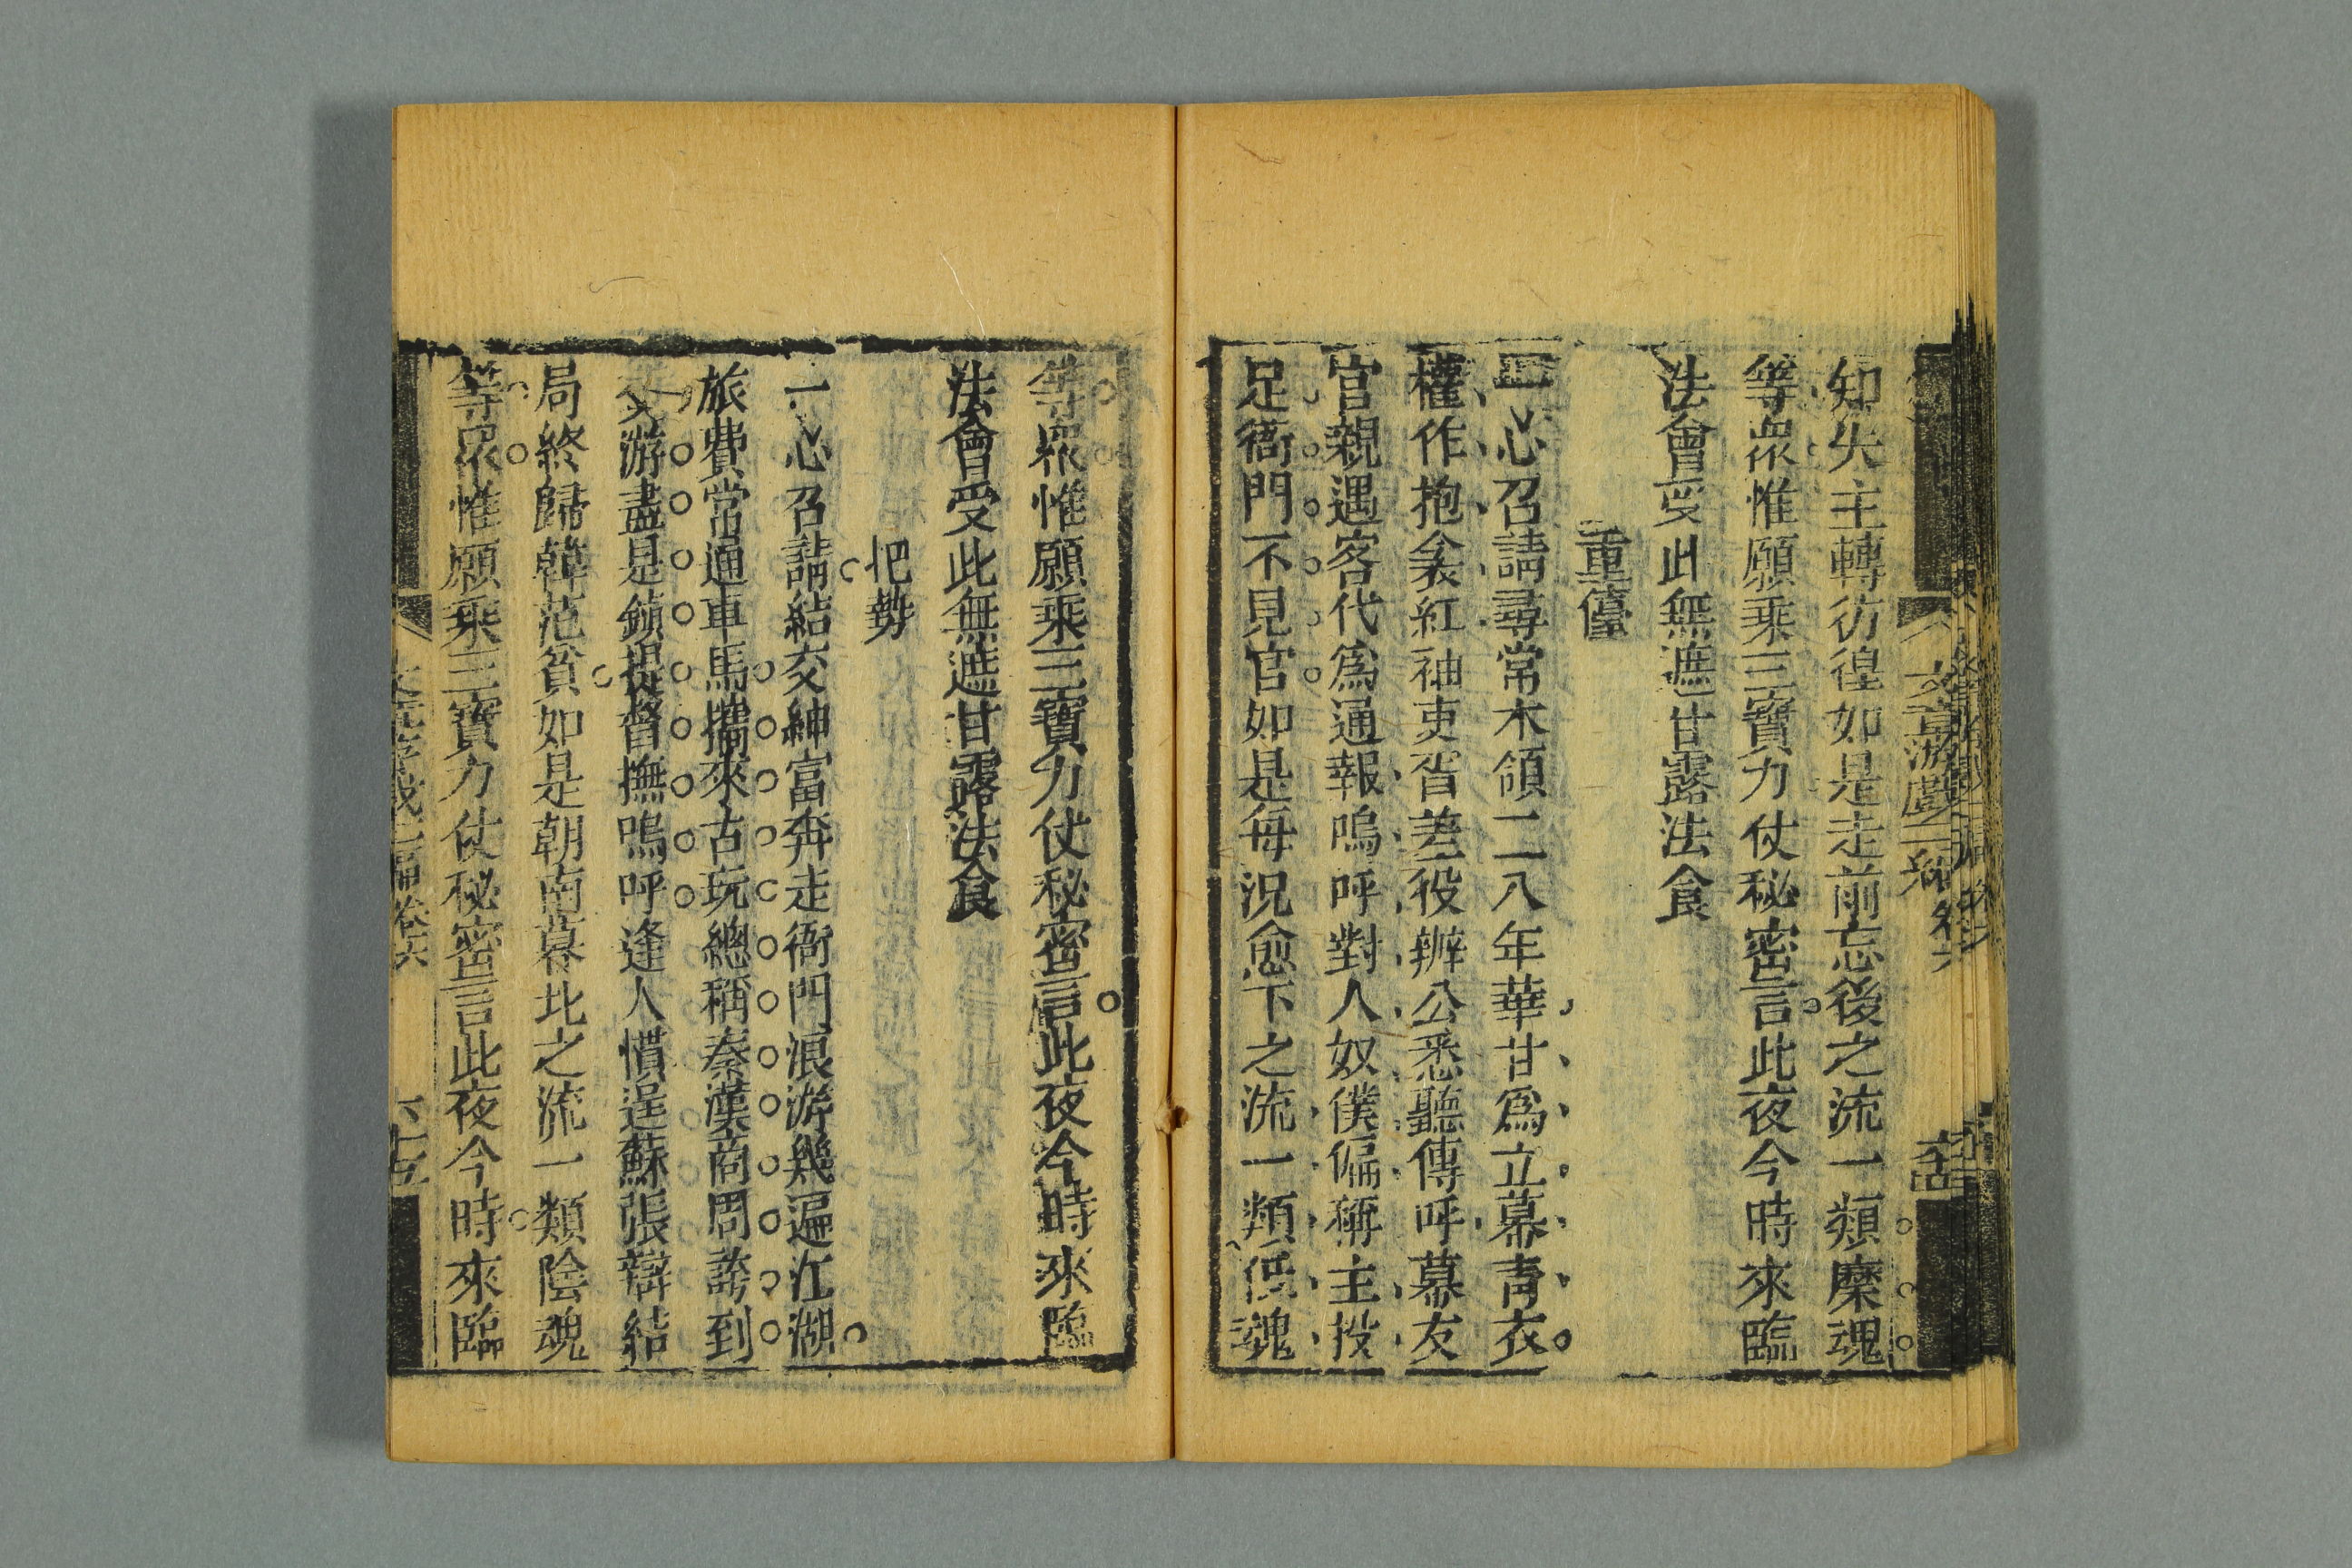 文章游戲二編 卷六
知失主轉彷徨如是走前忘後之流一類縻魂
等衆惟願乘三寶力仗秘密言此夜今時來臨
法會受此無遮甘露法食
重儓
一心召請尋常木領二八年華甘爲立幕青衣
權作抱衾紅袖吏胥差役辦公悉聽傳呼幕友
官親遇客代爲通報嗚呼對人奴僕偏稱主投
足衙門不見官如是每況愈下之流一類低魂
等衆惟願乘三寶力仗秘密言此夜今時來臨
法會受此無遮甘露法食
把勢
一心召請結交紳富奔走衙門浪游幾遍江湖
旅費常通車馬攜來古玩總稱秦漢商周誇到
交游盡是鎮提督撫嗚呼逢人慣逞蘇張辯結
局終歸韓范貧如是朝南暮北之流一類陰魂
等衆惟願乘三寶力仗秘密言此夜今時來臨
卷六
六十五